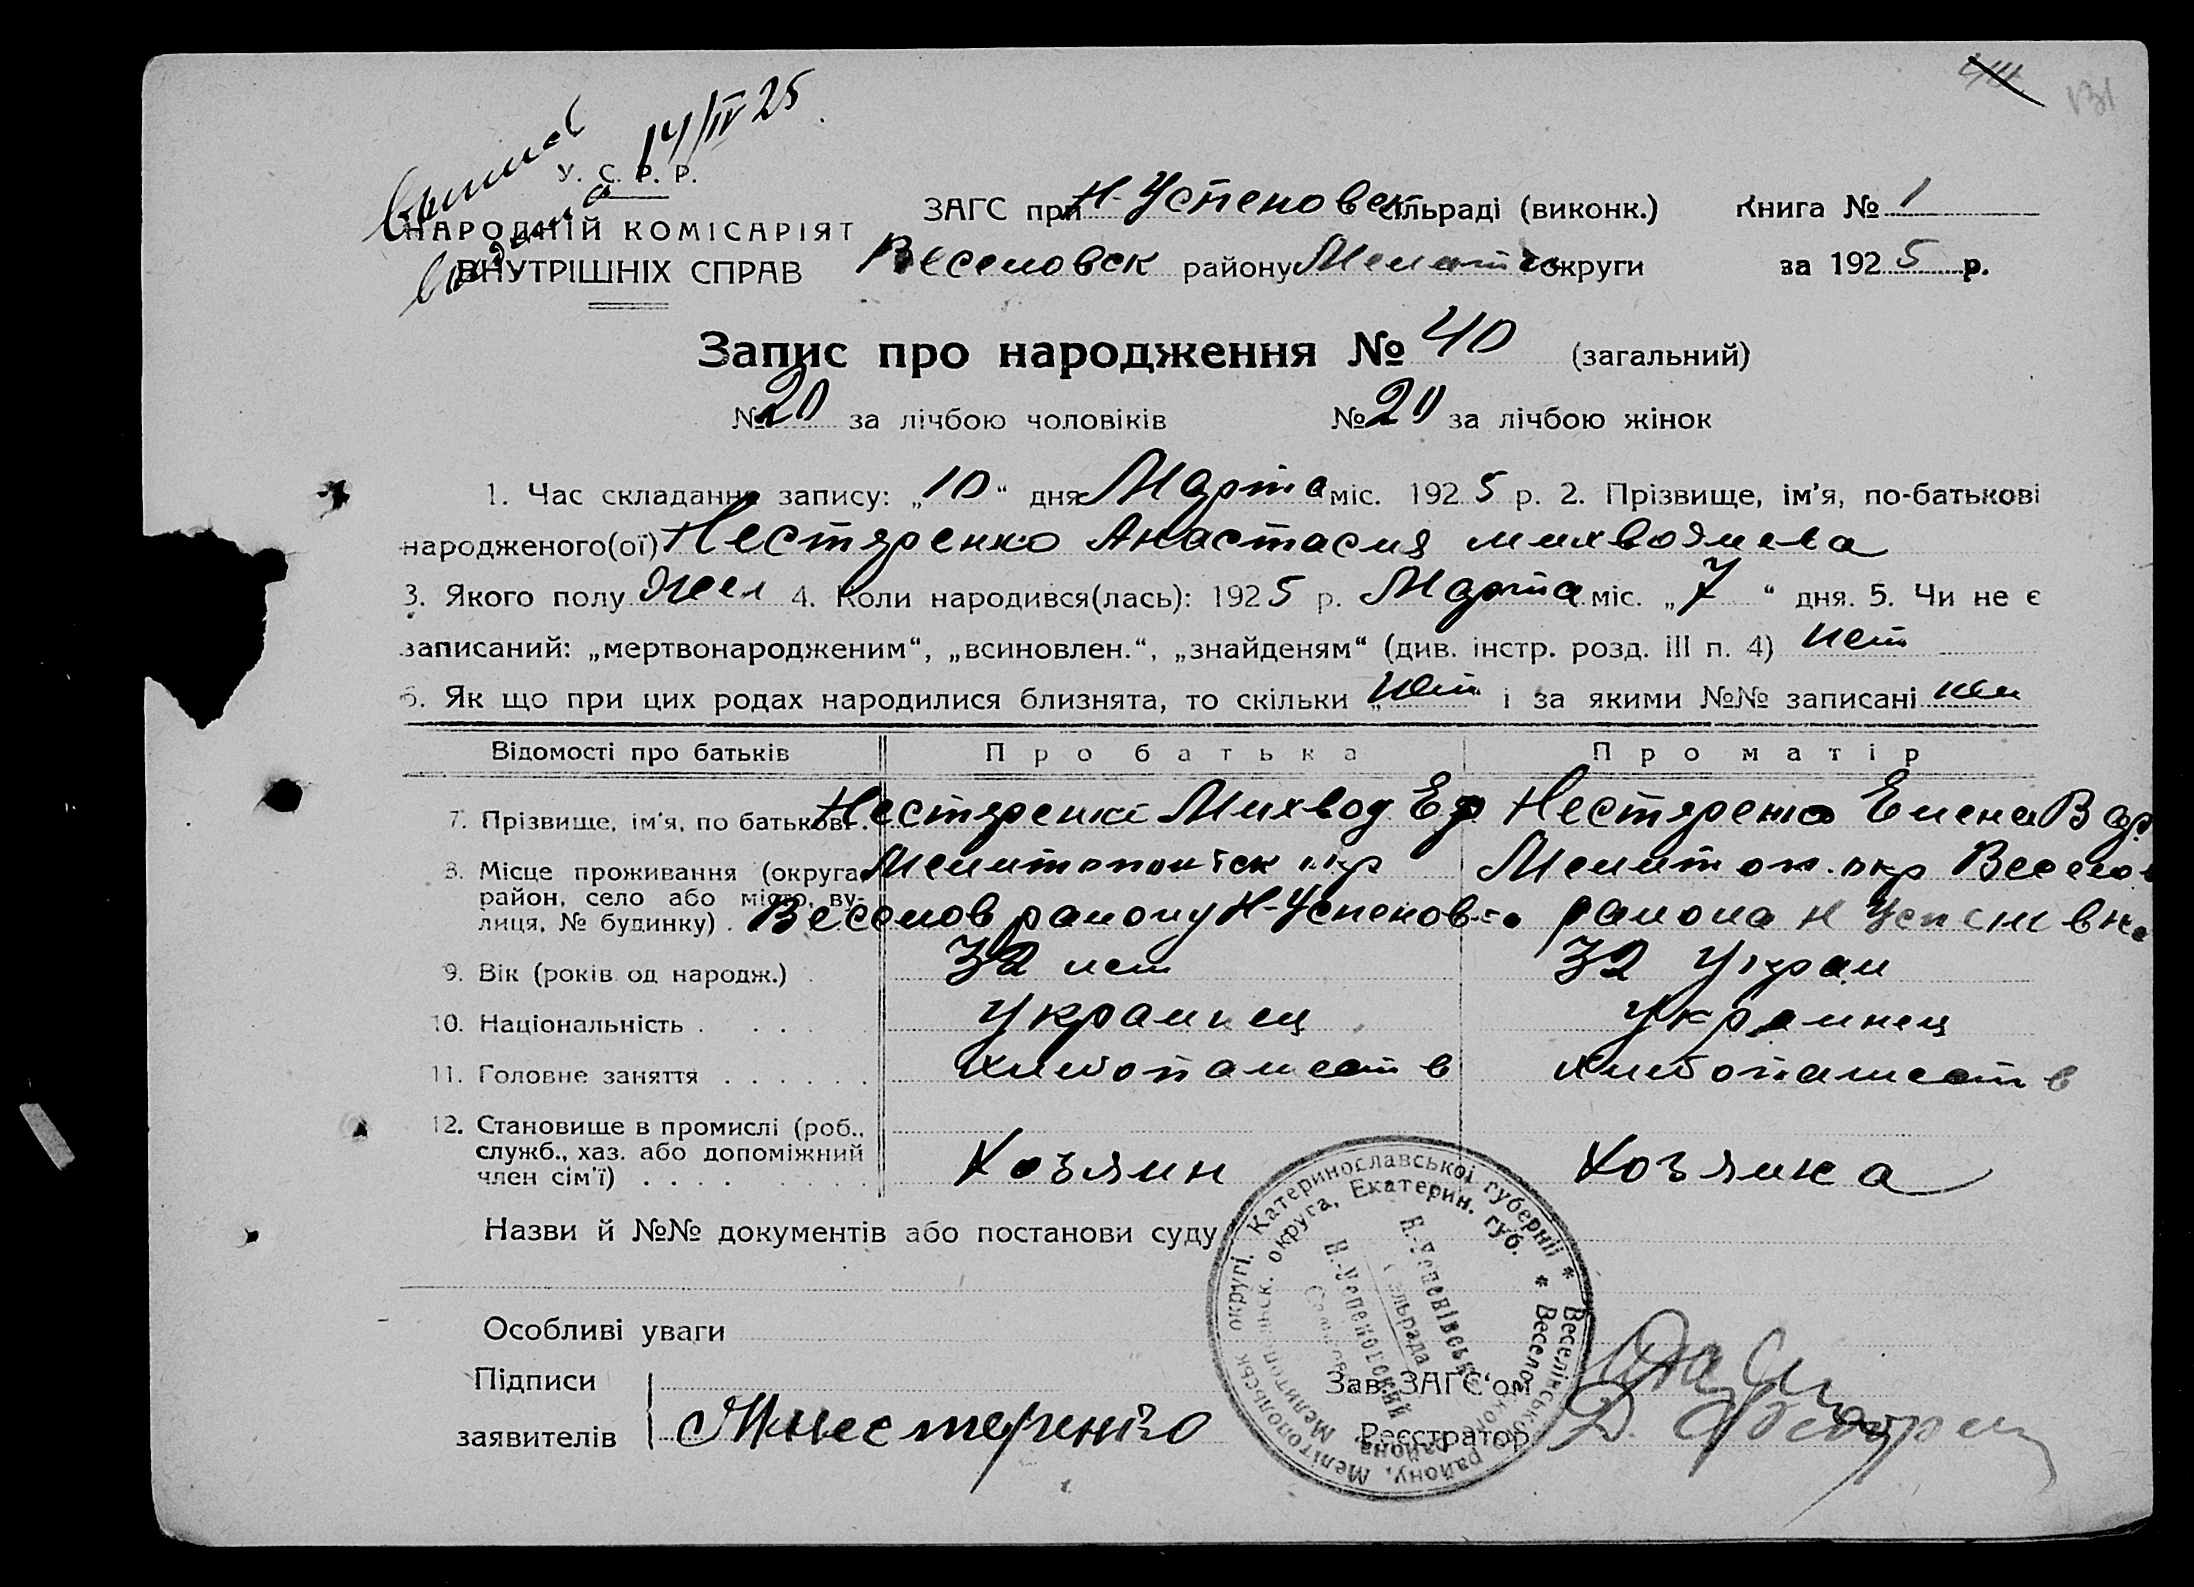 131
14/IV 25
У. С. Р. Р.
НАРОДНІЙ КОМІСАРІЯТ
ВНУТРІШНІХ СПРАВ
ЗАГС при Н-Успеновск сільраді (виконк.) Книга № 1
Веселовск району Мелит округи за 1925 р.
Запис про народження № 40 (загальний)
№ 20 за лічбою чоловіків № 20 за лічбою жінок
1. Час складання запису: „10“ дня Марта міс. 1925 р. 2. Прізвище, ім'я, по-батькові
народженого(ої) Нестяренко Анастасия
3. Якого полу жел 4. Коли народився(лась): 1925 р. Марта міс. „7“ дня. 5. Чи не є
записаний: „мертвонародженим“, „всиновлен.“, „знайденям“ (див. інстр. розд. III п. 4) нет
6. Як що при цих родах народилися близнята, то скільки „нет і за якими №№ записані нет
Відомості про батьків Про батька Про матір
7. Прізвище, ім'я, по батькові. Нестяренко Михвод Еф Нестяренко Елена Вар
8. Місце проживання (округа, район, село або місто, вулиця, № будинку) . Мелитопольск окр Мелитоп. окр Веселов
Веселов району Н-Успеновка района Н Успеновка
9. Вік (років од народж.) . 32 лет 32 Украи
10. Національність . . . . Украинец Украинец
11. Головне заняття . . . . . . хлибопашеств хлибопашеств
12. Становище в промислі (роб., служб., хаз. або допоміжний член сім'ї) . . . . . . . . Хозяин Хозяика
Назви й №№ документів або постанови суду
Особливі уваги
Підписи
заявителів Мнестеренко
Зав. ЗАГС'ом
Реєстратор
Мелітопольськ округі. Катеринославської губернії * Веселівського району,
Мелитопольск. округа, Екатерин. губ. * Веселовского района
Н.-Успенівська
Сільрада
Н.-Успеновский